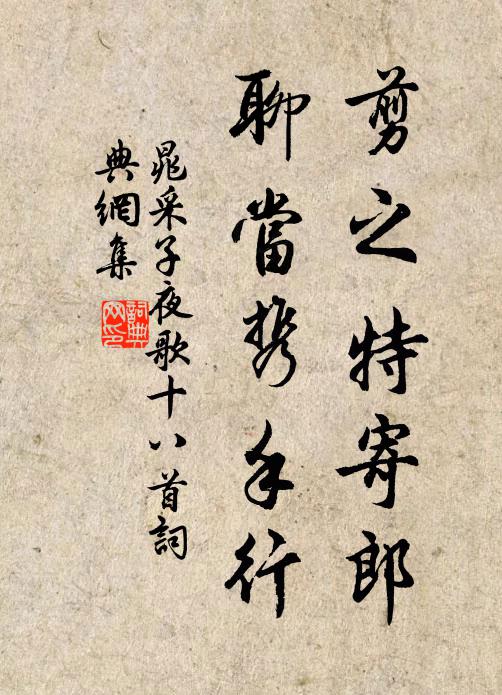 剪之特寄郎
聊當携手行
晁采子夜歌十八首詞
典網集
詞典網印